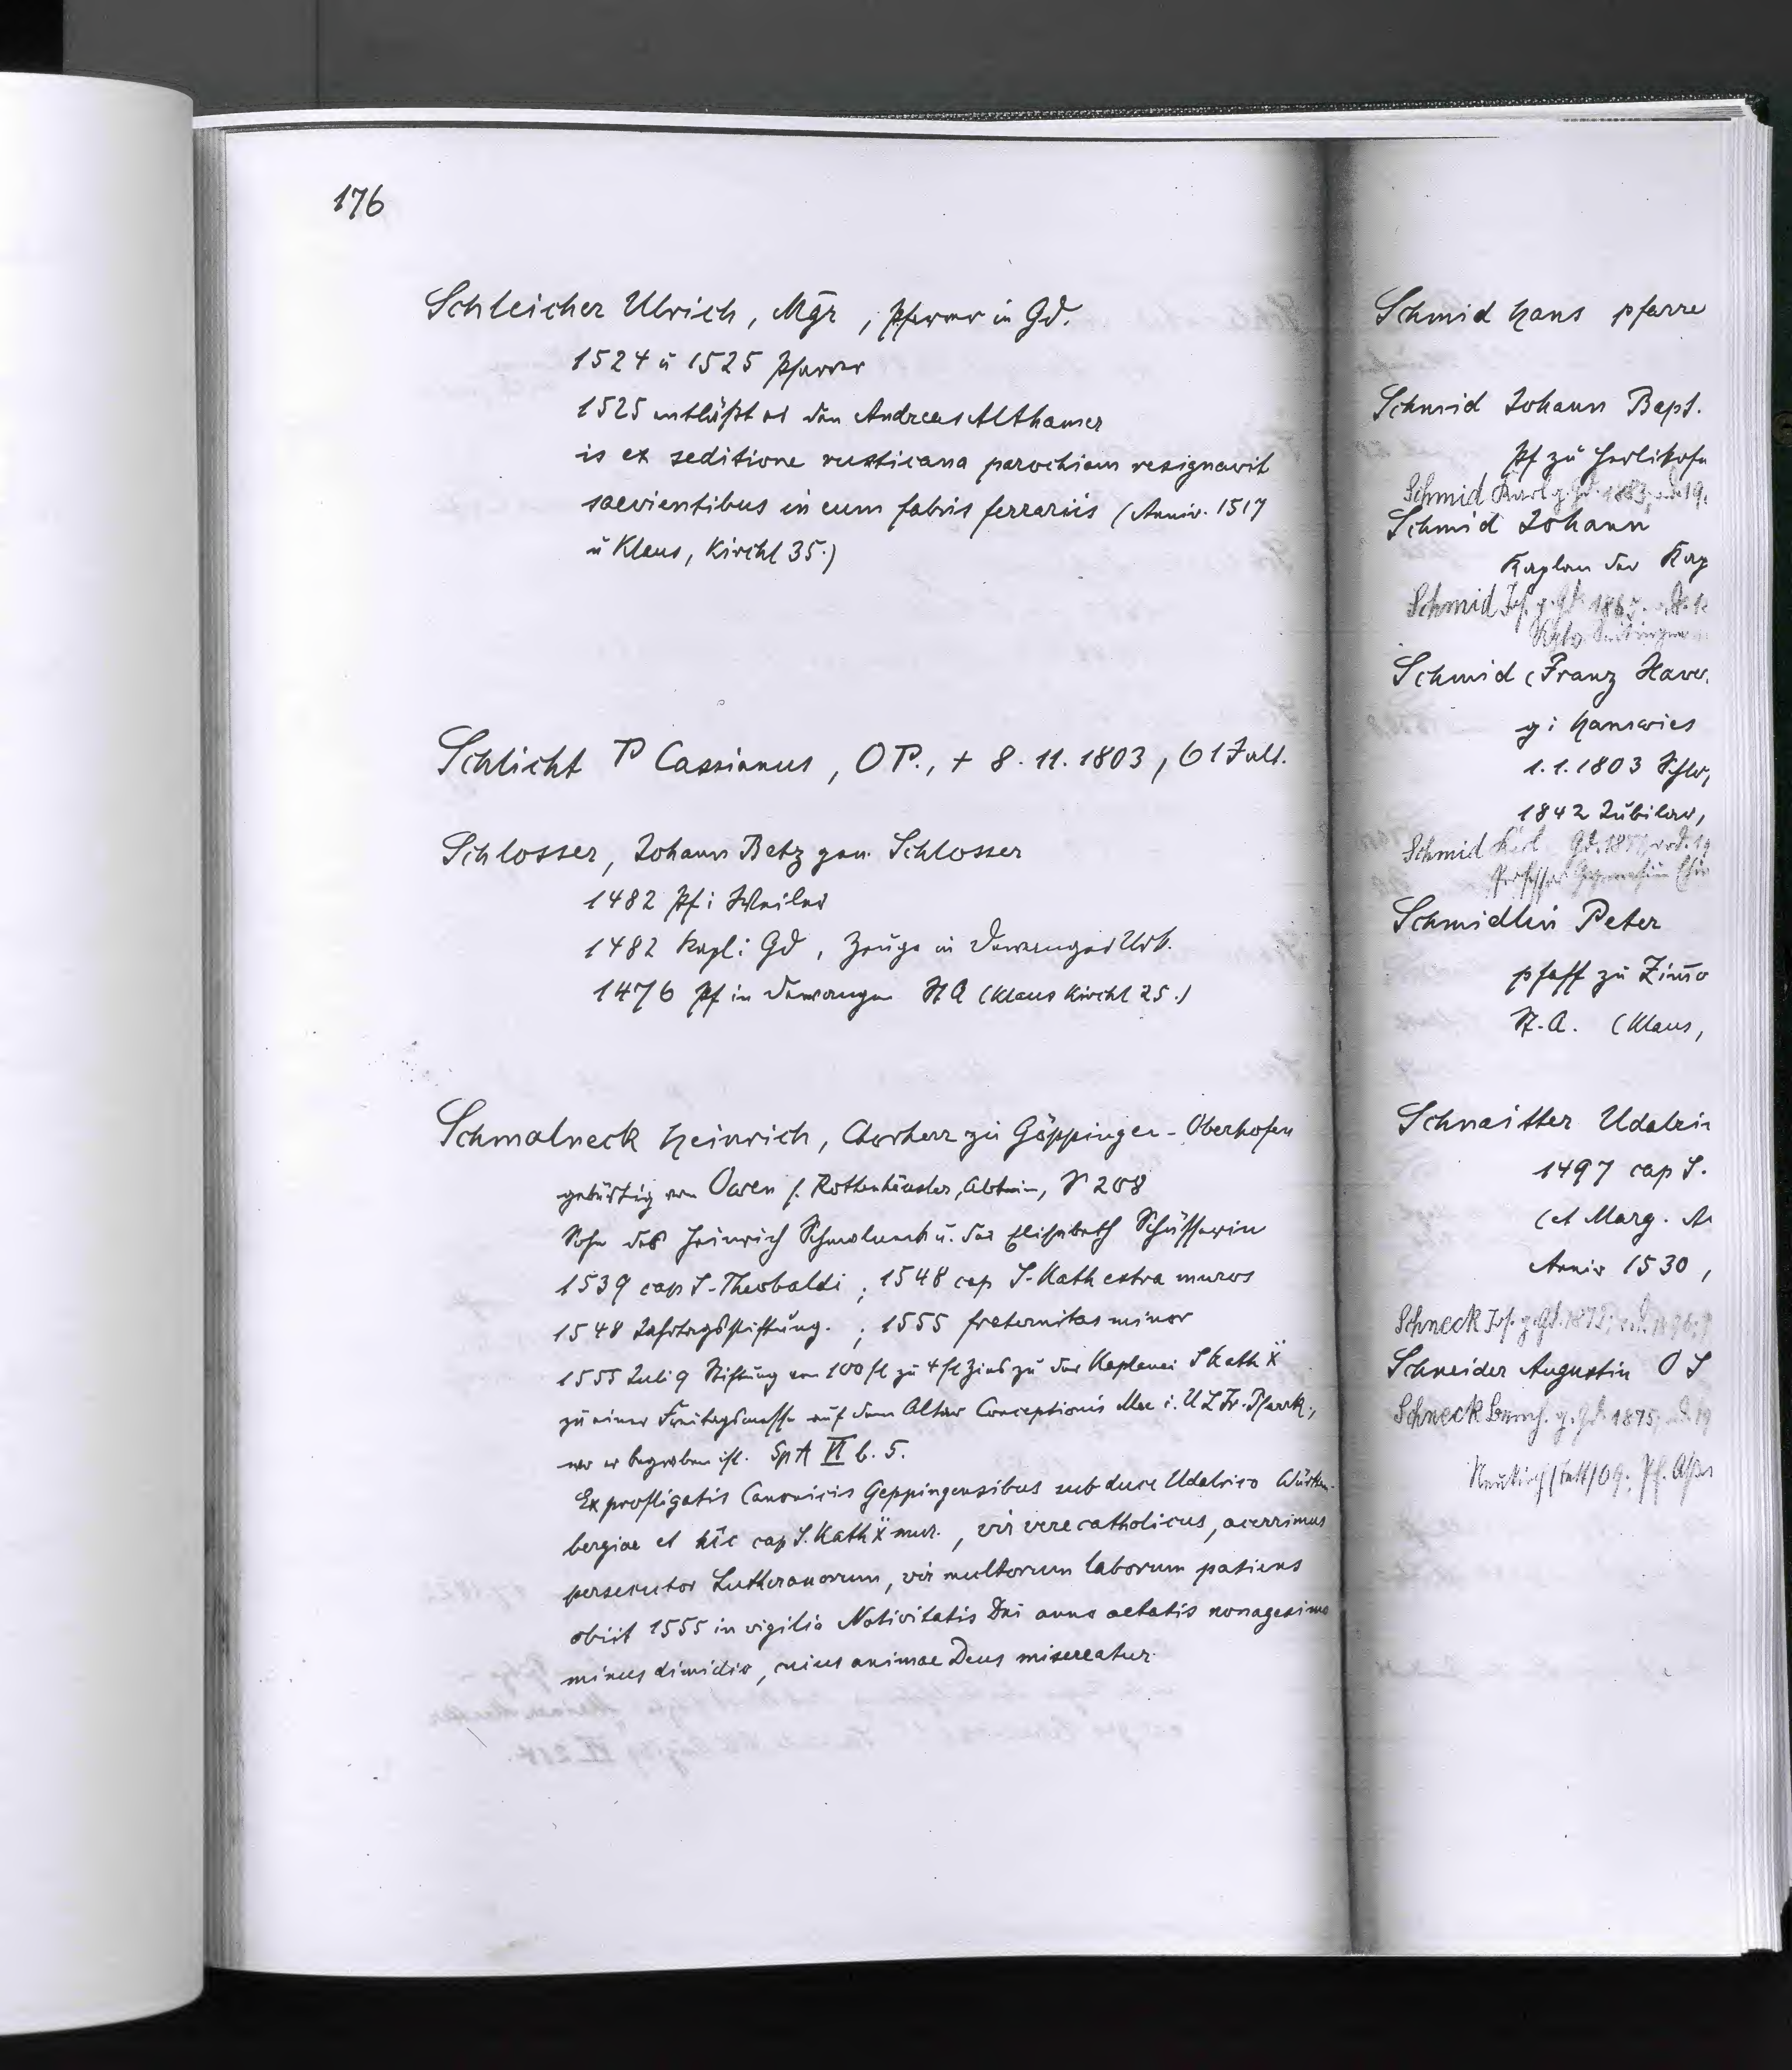 176
Schleicher Ulrich, Mgr, Pfarrer in Gd.
1524 u 1525 Pfarrer
1525 entläßt er den Andreas Althamer
is ex seditione rusticana parochiam resignavit
saevientibus in eum fabris ferrariis (Anniv. 1517
u Klaus, Kirchl 35.)
Schlicht P Cassianus, OP., + 8.11.1803, 61 J alt.
Schlosser, Johann Betz gen. Schlosser
1482 Pf i Weiler
1482 Kapl i Gd, Zeuge in Dewanger Urk.
1476 Pf in Dewangen StA (Klaus Kirchl 25.)
Schmalneck Heinrich, Chorherr zu Göppingen-Oberhofen
gebürtig von Owen s. Rottenhäusler, Abtein, S 208
Sohn des Heinrich Schmalneck u. der Elisabeth
1539 cap S. Theobaldi; 1548 cap S. Kath extra muros
1548 Jahrtagsstiftung.; 1555 fraternitas minor
1555 Juli 9 Stiftung von 100 fl zu 4 fl Zins zu der Kaplanei S Kath ẍ
zu einer Freitagsmesse auf dem Altar Conceptionis Mae i. U L Fr. Pfarrk.,
wo er begraben ist. SpA VI b. 5.
Ex profligatis Canonicis Geppingensibus sub duce Udalrico Würten-
bergiae et hic cap S. Kath ẍ mur., vir vere catholicus, acerrimus
persecutor Lutheranorum, vir multorum laborum patiens
obiit 1555 in vigilia Nativitatis Dni anno aetatis nonagesimo
minus dimidio, cuius animae Deus misereatur.
Schmid Hans pfarre
Schmid Johann Bapt.
Pf zu Herlikofe
Schmid Karl g. Gd. 1883,
Schmid Johann
Kaplan der Kap
Schmid Jos. g. Gd. 1865.
Schmid (Franz Xaver
g i Hanswies
1.1.1803
1842 Jubilar,
Schmid Gd. 1857
Professor
Schmidlin Peter
pfaff zu Zimo
St. A. (Klaus,
Schnaitter Udalri
1497 cap S.
(et Marg. A
Anniv 1530,
Schneck Jos. g. Gd. 1872;
Schneider Augustin O S
Schneck g. Gd. 1875;
09; Pf.